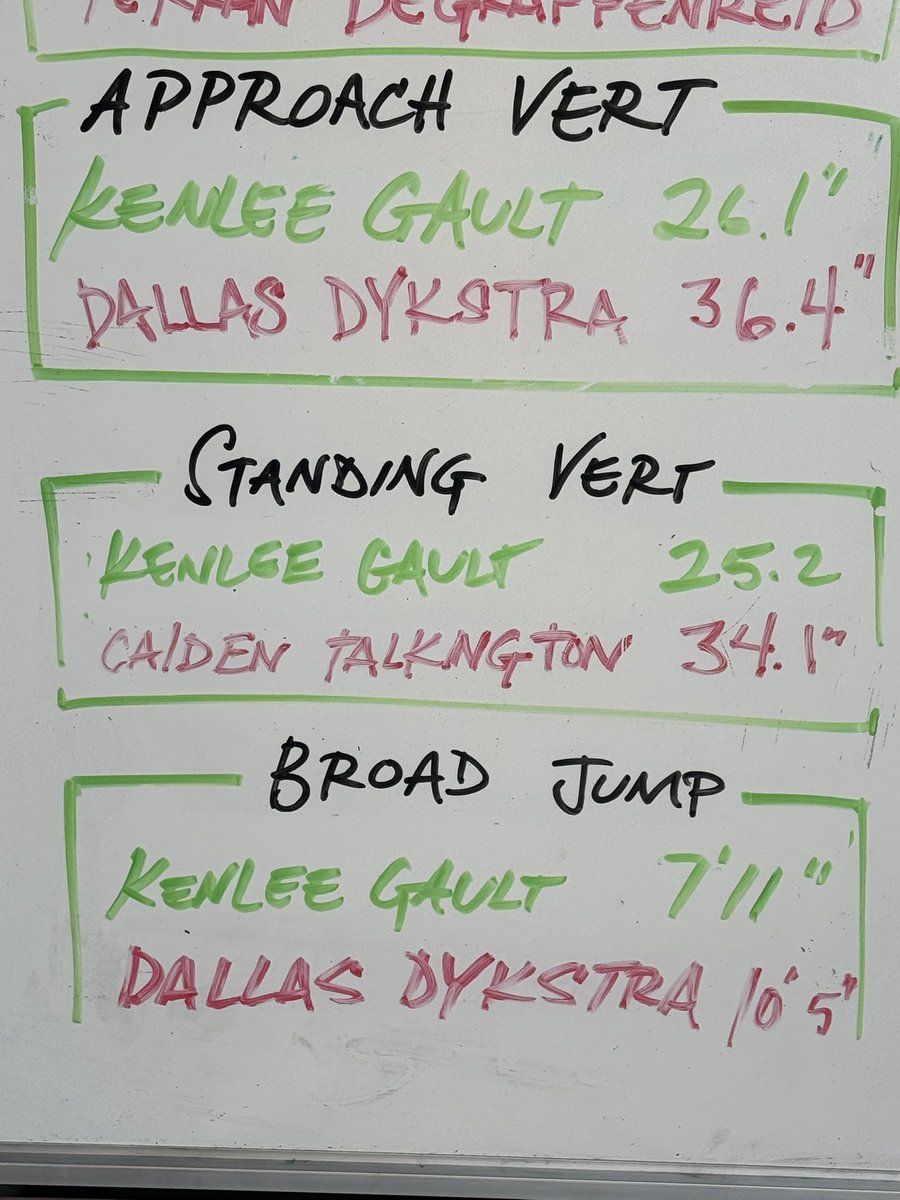 DEGRAFFENREID
APPROACH VERT
KENLEE GAULT 26.1"
DALLAS DYKSTRA 36.4"
STANDING VERT
KENLEE GAULT 25.2
CAIDEN TALKNGTON 34.1"
BROAD JUMP
KENLEE GAULT 7'11"
DALLAS DYKSTRA 10'5"